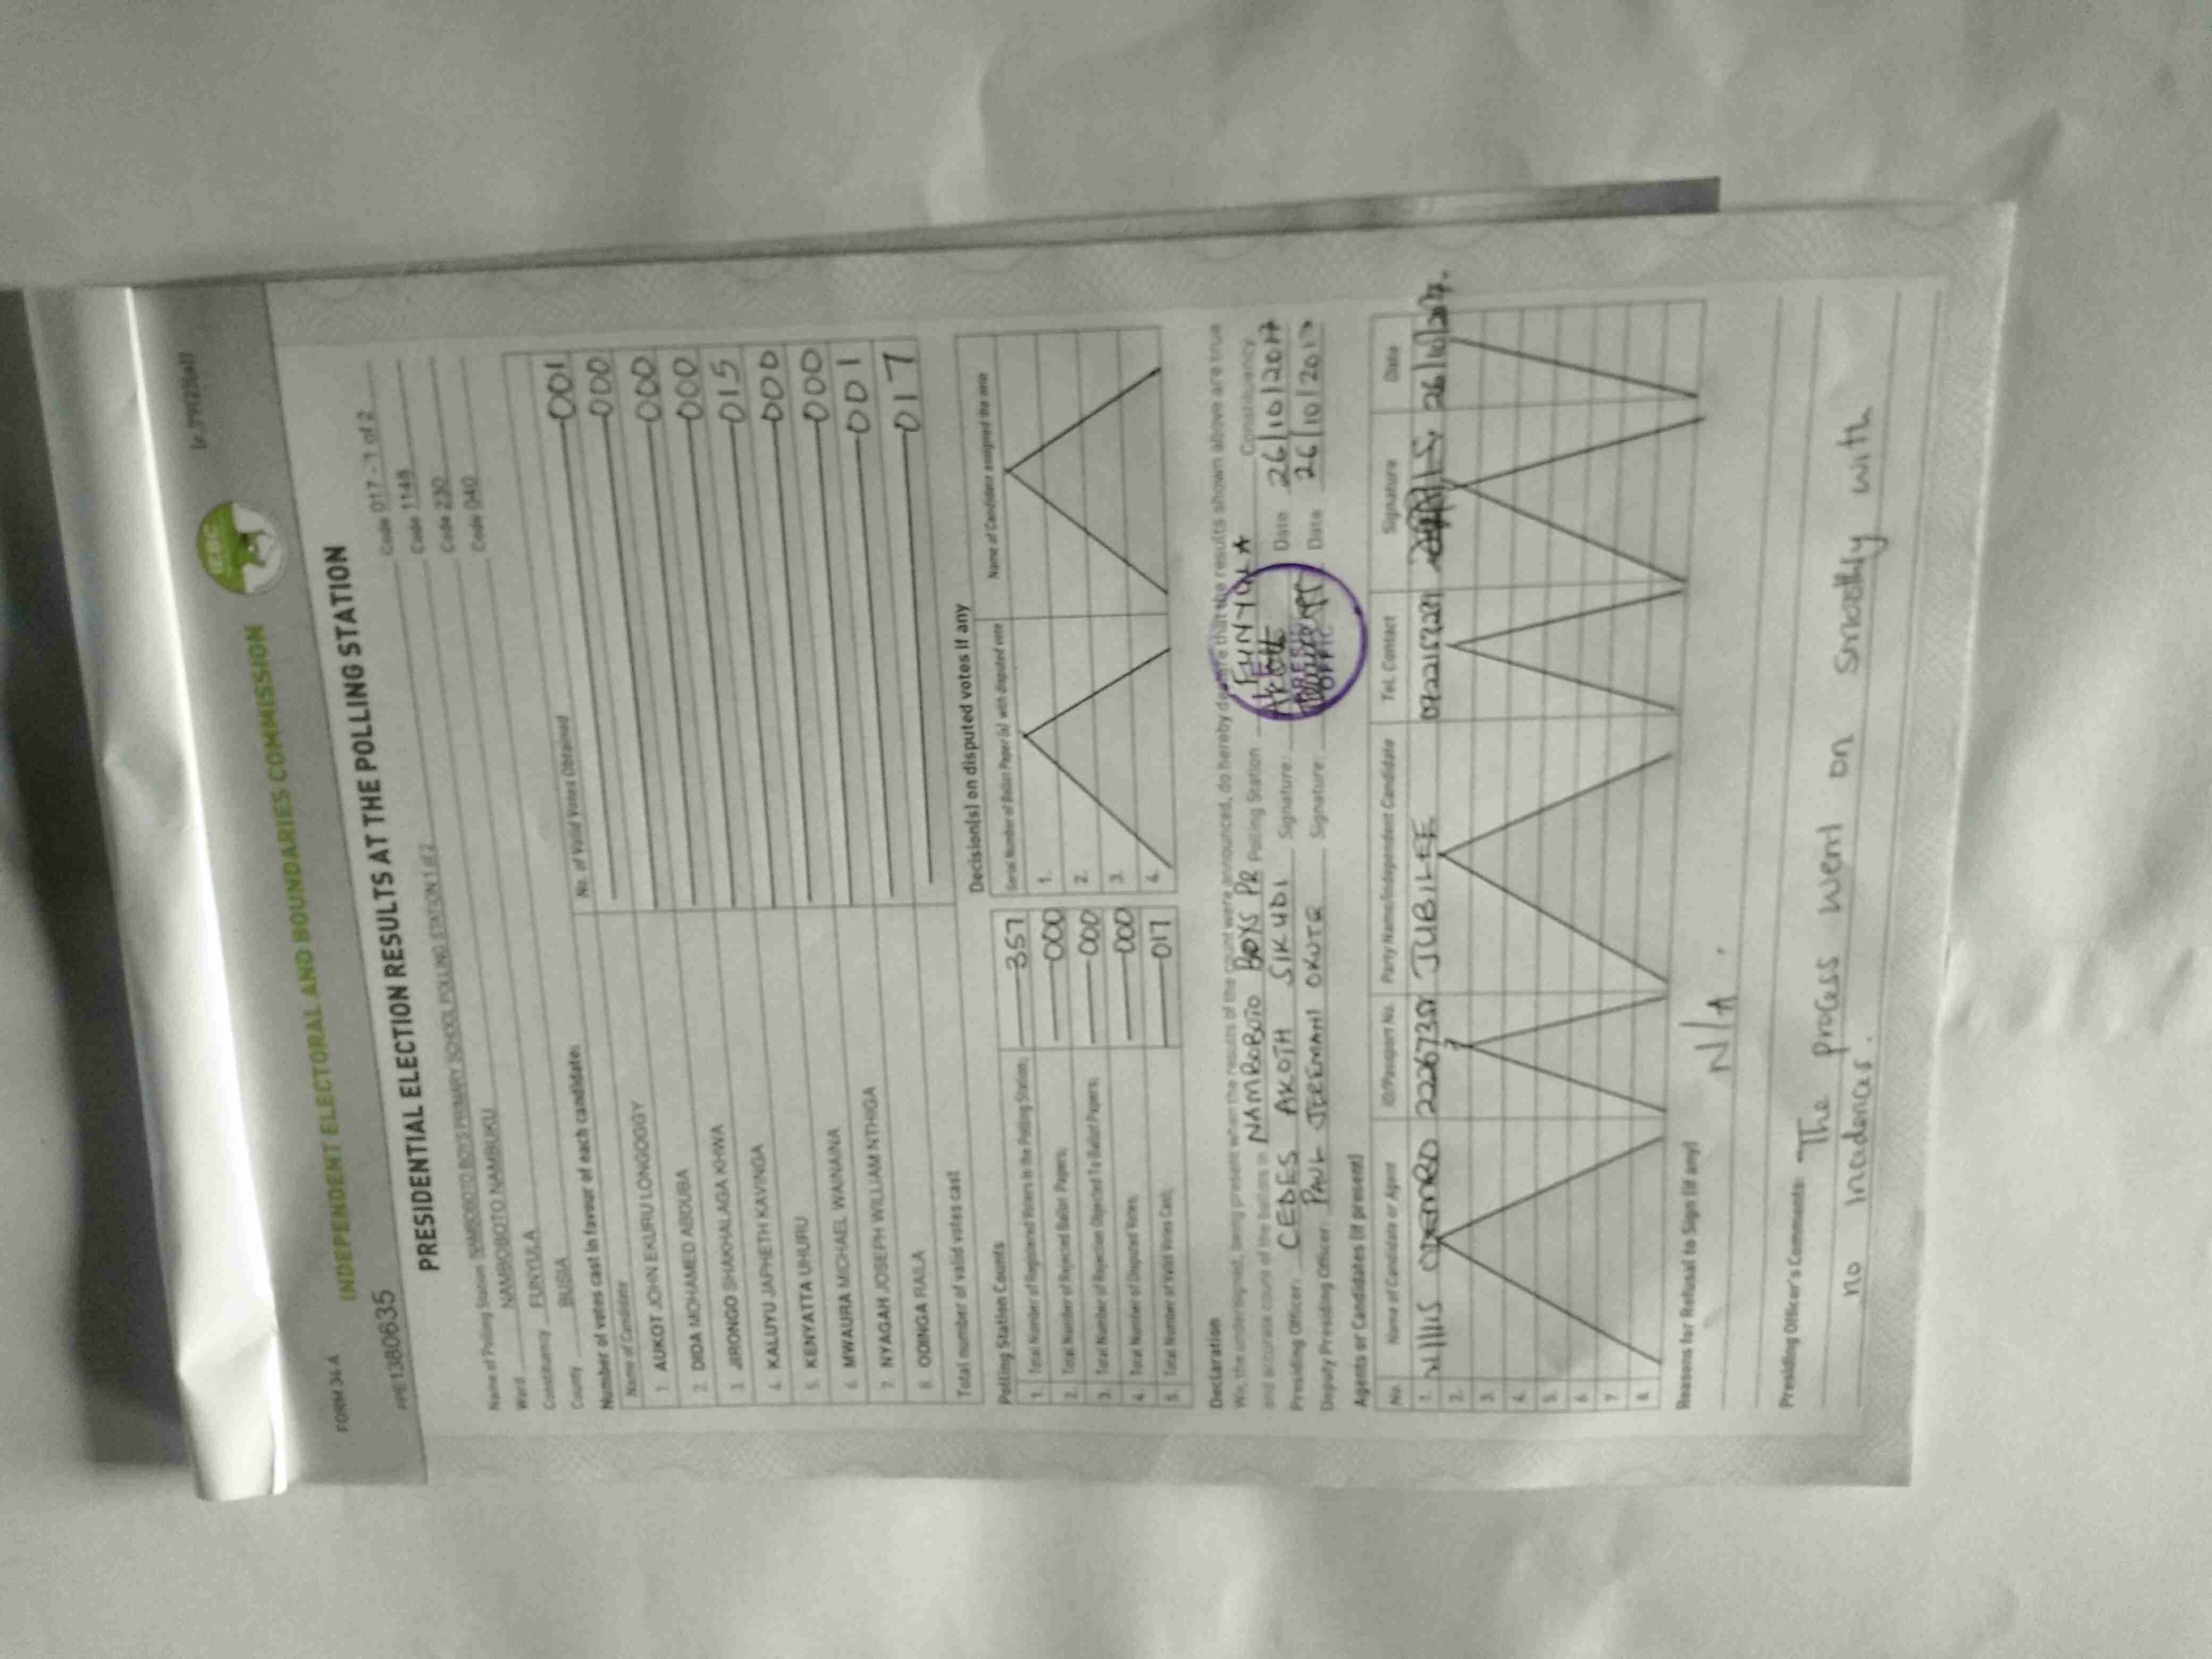 FORM 34 A
INDEPENDENT ELECTORAL AND BOUNDARIES COMMISSION
IEBC
PRE1380635
PRESIDENTIAL ELECTION RESULTS AT THE POLLING STATION
Name of Polling Station NAMBOBOTO BOYS PRIMARY SCHOOL POLLING STATION 1 of 2 Code 017 - 1 of 2
Ward NAMBOBOTO NAMBUKU Code 1148
Constituency FUNYULA Code 230
County BUSIA Code 040
Number of votes cast in favour of each candidate:
Name of Candidate No. of Valid Votes Obtained
1. AUKOT JOHN EKURU LONGOGGY 001
2. DIDA MOHAMED ABDUBA 000
3. JIRONGO SHAKHALAGA KHWA 000
4. KALUYU JAPHETH KAVINGA 000
5. KENYATTA UHURU 015
6. MWAURA MICHAEL WAINAINA 000
7. NYAGAH JOSEPH WILLIAM NTHIGA 000
8. ODINGA RAILA 001
Total number of valid votes cast 017
Polling Station Counts
1. Total Number of Registered Voters in the Polling Station: 357
2. Total Number of Rejected Ballot Papers: 000
3. Total Number of Rejection Objected To Ballot Papers: 000
4. Total Number of Disputed Votes: 000
5. Total Number of Valid Votes Cast: 017
Decision(s) on disputed votes if any
Serial Number of Ballot Paper (s) with disputed vote Name of Candidate assigned the vote
1.
2.
3.
4.
Declaration
We, the undersigned, being present when the results of the count were announced, do hereby declare that the results shown above are true
and accurate count of the ballots in NAMBOBOTO BOYS PR Polling Station FUNYULA Constituency.
Presiding Officer: CEDES AKOTH SIKUDI Signature: Date 26/10/2017
Deputy Presiding Officer: PAUL JEREMAH OKUTE Signature: Date 26/10/2017
Agents or Candidates (if present)
No. Name of Candidate or Agent ID/Passport No. Party Name/Independent Candidate Tel. Contact Signature Date
1. JUBILEE 26/10/2017.
2.
3.
4.
5.
6.
7.
8.
Reasons for Refusal to Sign (if any)
N/A.
Presiding Officer's Comments: The process went on smoothly with
no incidences.